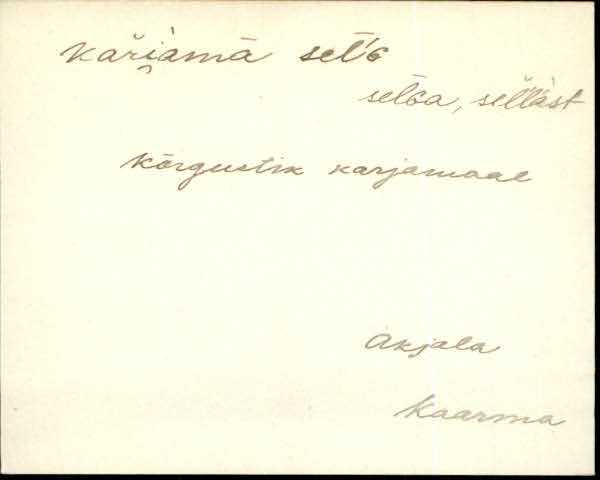 karjamā sel'G
selGa, sellast
kõrgustik karjamaal
Akjala
Kaarma